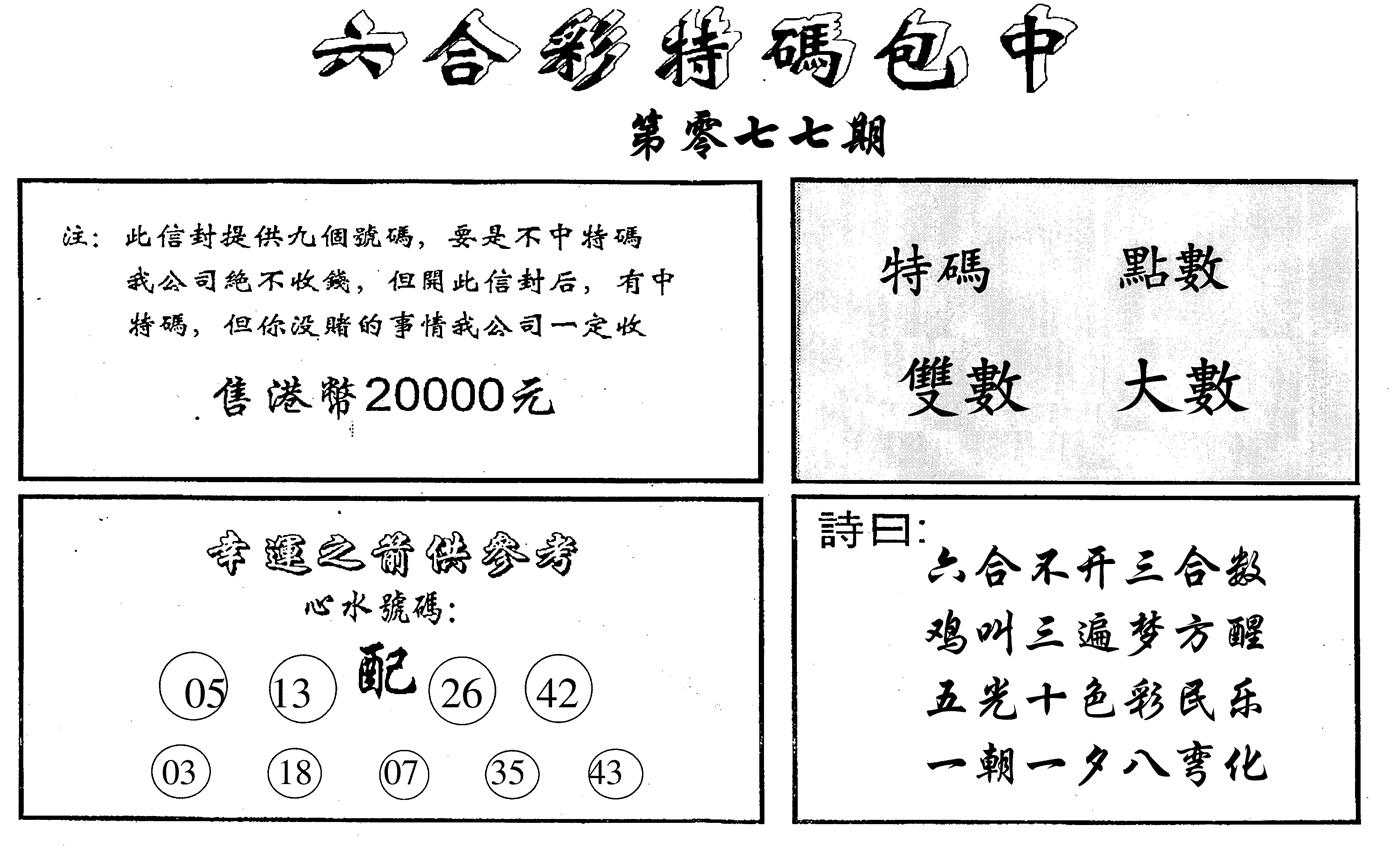 六合彩特碼包中
第零七七期
注：此信封提供九個號碼，要是不中特碼
我公司絕不收錢，但開此信封后，有中
特碼，但你没賭的事情我公司一定收
售港幣20000元
特碼 點數
雙數 大數
幸運之箭供參考
心水號碼：
05 13 配 26 42
03 18 07 35 43
詩曰：
六合不开三合数
鸡叫三遍梦方醒
五光十色彩民乐
一朝一夕八弯化